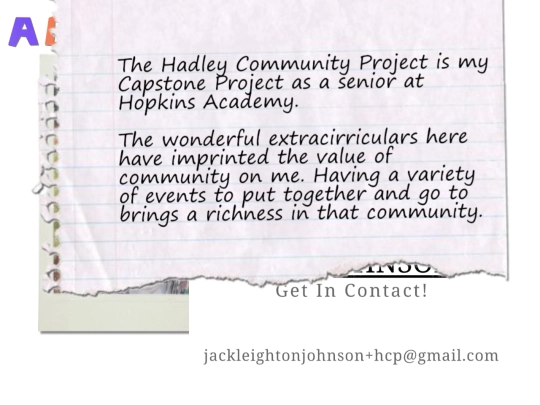 The Hadley Community Project is my
Capstone Project as a senior at
Hopkins Academy.
The wonderful extracirriculars here
have imprinted the value of
community on me. Having a variety
of events to put together and go to
brings a richness in that community.
Get In Contact!
jackleightonjohnson+hcp@gmail.com